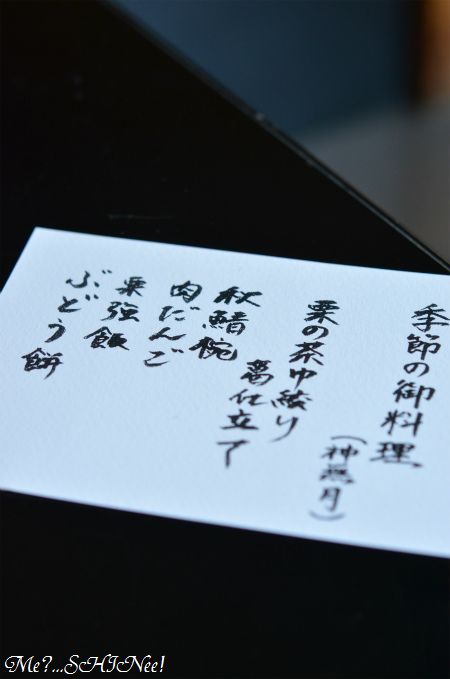 季節の御料理
（神無月）
栗の茶巾絞り
秋鯖椀
葛仕立て
肉だんご
栗強飯
ぶどう餅
Me?...SHINee!